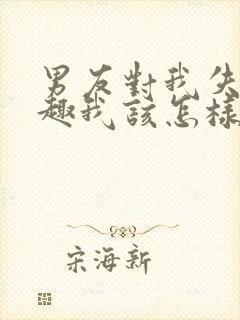 男友對我失
趣我該怎樣
宋海新